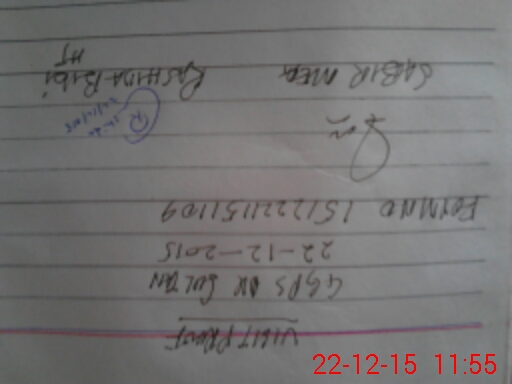 VISIT PROOF
GGPS DK SULTAN
22-12-2015
FORM NO 1512221151109
SABIR MEA RASHIDA BiBi
HT
22-12-15 11:55